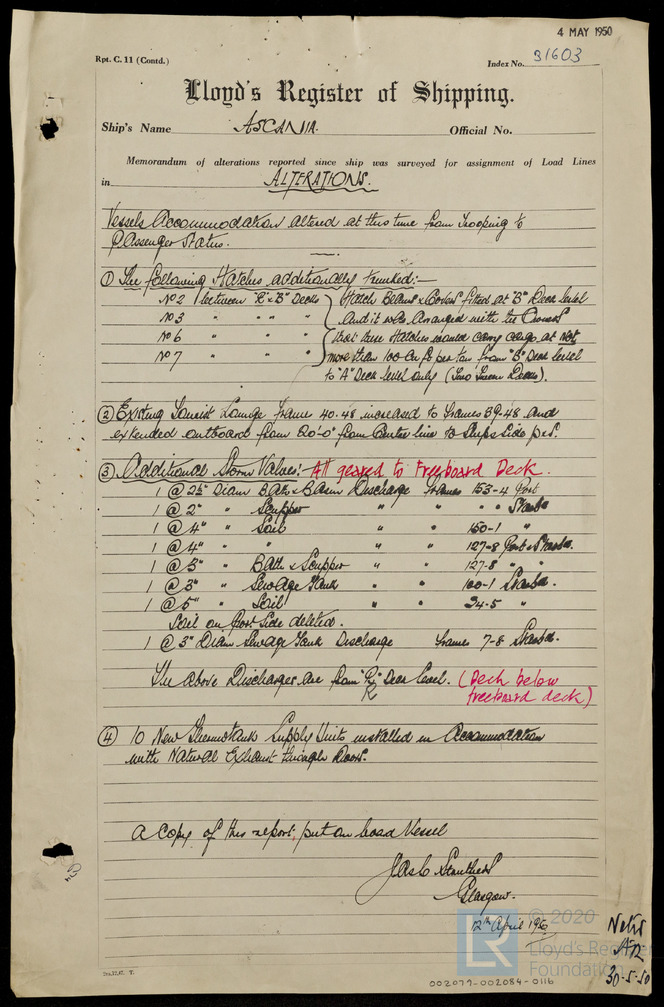 4 MAY 1950
Rpt. C. 11 (Contd.)
Index No. 31603
Lloyd's Register of Shipping.
Ship's Name ASCANIA.
Official No.
Memorandum of alterations reported since ship was surveyed for assignment of Load Lines
in ALTERATIONS.
Vessels Accommodation altered at this time from Trooping to
Passenger Status.
① The following Hatches additionally trunked:-
No 2 between "C" & "B" Decks } Hatch Beams & Covers fitted at "B" Deck level
No 3 " " " " And it was arranged with the Owners
No 6 " " " that these Hatches would carry cargo at not
No 7 " " " more than 100 cu ft per ton from "B" Deck level
to "A" Deck level only (Two Tween Decks).
② Existing Tourist Lounge frame 40-48 increased to frames 39-48 and
extended outboard from 20'-0" from Centre line to Ships Side p&s.
③ Additional Storm Valves:- All geared to Freeboard Deck.
1 @ 2½" Diam Bath & Basin Discharge frames 153-4 Port
1 @ 2" " Scupper " " " " Starbd
1 @ 4" " Soil " " 150-1 "
1 @ 4" " " " " 127-8 Port & Starbd.
1 @ 3" " Bath & Scupper " " 127-8 " "
1 @ 3" " Sewage Tank " " 100-1 Starbd.
1 @ 5" " Soil " " 24-5 "
Soil on Port Side deleted.
1 @ 3" Diam Sewage Tank Discharge frames 7-8 Starbd.
The above Discharges are from Deck level. (Deck below
freeboard deck)
④ 10 New Thermotank Supply Units installed in Accommodation
with Natural Exhaust through Doors.
A Copy of this report, put on board Vessel
Glasgow.
12th April 1950
Noted
30-5-50
© 2020
Lloyd's Register
Foundation
002079-002084-0116